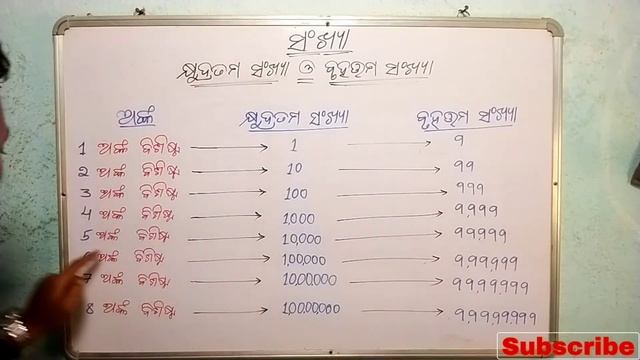 ସଂଖ୍ୟା
କ୍ଷୁଦ୍ରତମ ସଂଖ୍ୟା ଓ ବୃହତ୍ତମ ସଂଖ୍ୟା
ଅଙ୍କ କ୍ଷୁଦ୍ରତମ ସଂଖ୍ୟା ବୃହତ୍ତମ ସଂଖ୍ୟା
1 ଅଙ୍କ ବିଶିଷ୍ଟ → 1 → 9
2 ଅଙ୍କ ବିଶିଷ୍ଟ → 10 → 99
3 ଅଙ୍କ ବିଶିଷ୍ଟ → 100 → 999
4 ଅଙ୍କ ବିଶିଷ୍ଟ → 1,000 → 9,999
5 ଅଙ୍କ ବିଶିଷ୍ଟ → 10,000 → 99,999
ଅଙ୍କ ବିଶିଷ୍ଟ → 1,00,000 → 9,99,999
7 ଅଙ୍କ ବିଶିଷ୍ଟ → 10,00,000 → 99,99,999
8 ଅଙ୍କ ବିଶିଷ୍ଟ → 1,00,00,000 → 9,99,99,999
Subscribe